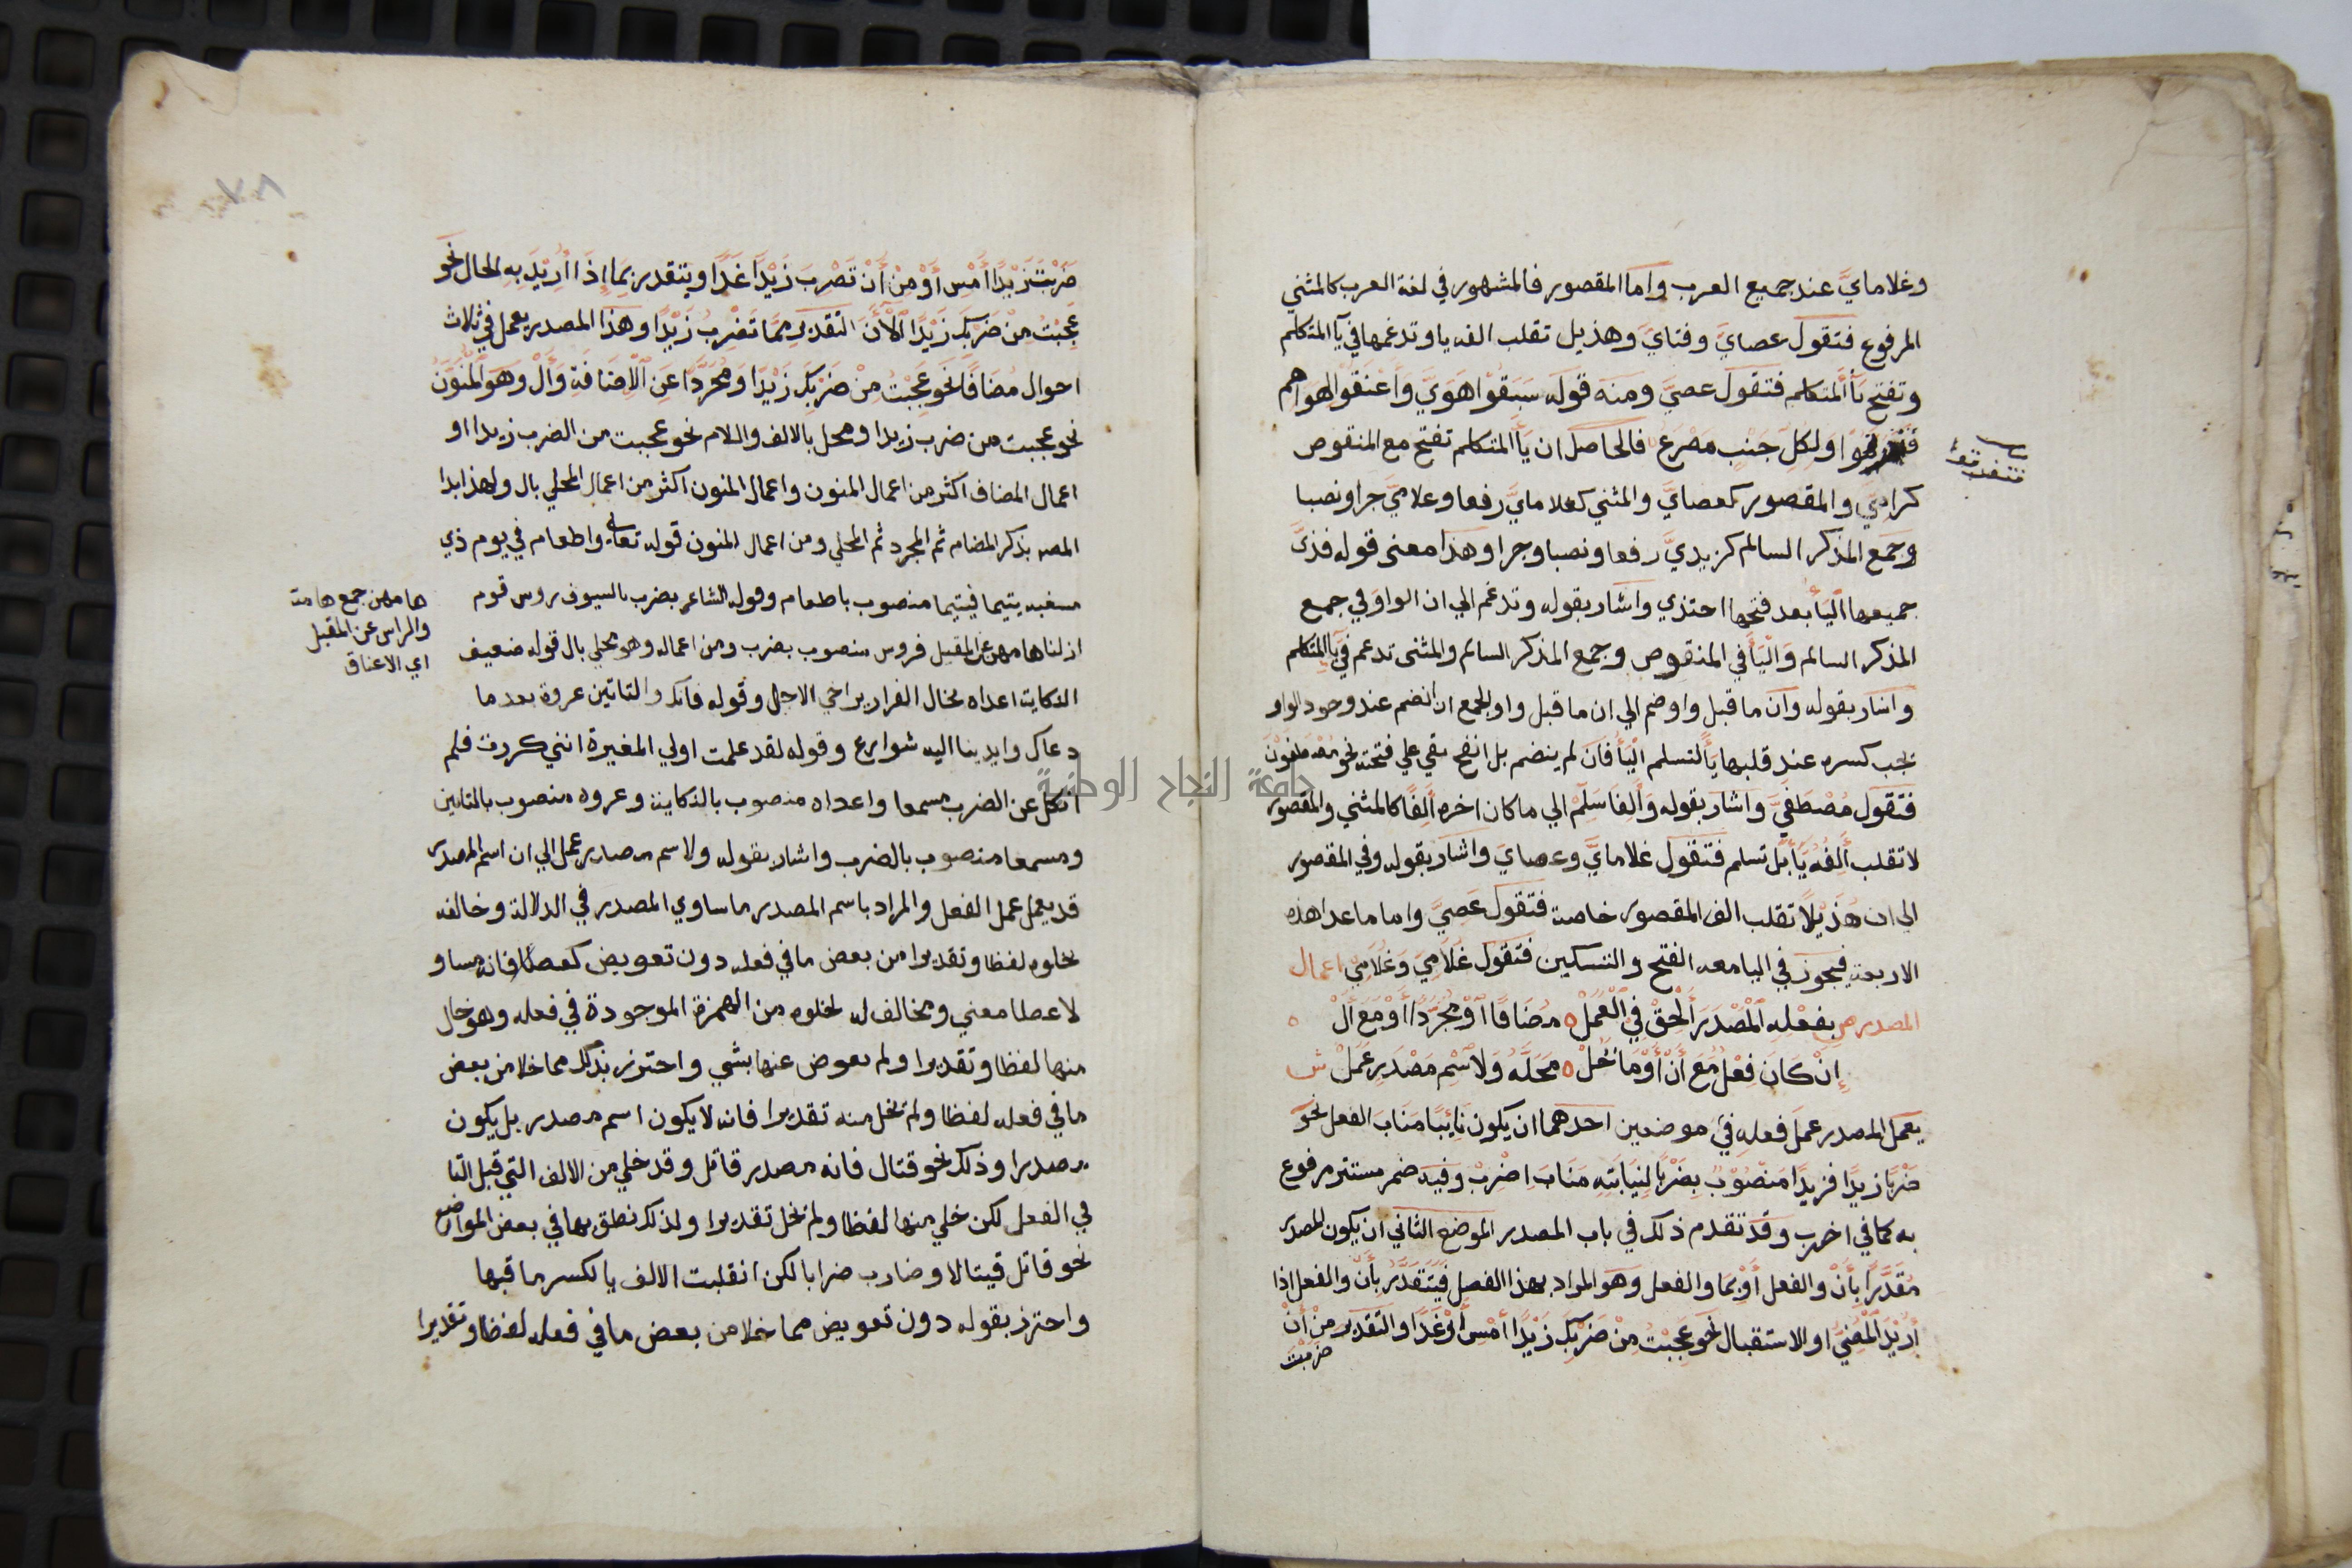 وغلامايَّ عند جميع العرب واما المقصور فالمشهور في لغة العرب كالمثني
المرفوع فتقول عصايَ وفتايَ وهذيل تقلب الفه يا وتدغمها في يآ المتكلم
وتفتح يآ المتكلم فتقول عصيَّ ومنه قوله سَبَقُوْا هَوَيَّ وَاَعْنَقُوْا لهواهم
ولِكلِ جَنْبٍ مَصْرَعُ فالحاصل ان يآ المتكلم تفتح مع المنقوص
كراميَّ والمقصور كعصايَ والمثني كغلامايَّ رفعا وغلاميَّ جرا ونصبا
وجمع المذكر السالم كزيديَّ رفعا ونصبا وجرا وهذا معنى قوله فذي
جميعها اليَا بعد فتحها احتذي واشار بقوله وتدغم الي ان الواو في جمع
المذكر السالم وَاليَا في المنقوص وجمع المذكر السالم والمثنى تدغم في يآ المتكلم
واشار بقوله وان ما قبل واو ضم الي ان ما قبل واو الجمع ان انضم عند وجود الواو
يجب كسره عند قلبها يآ لتسلم اليَا فان لم ينضم بل انفتح بقي علي فتحته نحو مُصْطَفَوْنَ
فتقول مُصْطَفَيَّ واشار بقوله وَألِفا سَلِّمْ الي ما كان اخره اَلِفًا كالمثني والمقصور
لا تقلب اَلِفُه يَا بل تسلم فتقول غلامايَّ وعصايَ واشار بقوله وفي المقصور
الي ان هُذَيْلا تقلب الف المقصور خاصة فتقول عَصَيَّ واما ما عدا هذه
الاربعة فيجوز في اليا معه الفتح والتسكين فتقول غُلاَمِيَ وَغُلاَمِيْ اعمال
المصدر ص بِفِعْلِهِ الْمَصْدَرَ اَلْحِقْ فِي الْعَمَلْ ه مُضَافًا اَوْ مُجَرَّدًا اَوْ مَعَ اَلْ ه
إِنْ كَانَ فِعْلٌ مَعَ اَنْ اَوْ مَا يَحُلْ ه مَحَلَّهُ وَلاسْمِ مَصْدَرٍ عَمَلْ ش
يعمل المصدر عمل فعلِهِ في موضعين احدهما ان يكون نَائِبًا مَنَابَ الفعل نحو
ضَرْبًا زيدًا فزيدًا مَنْصُوْبٌ بِضَرْبًا لِنِيَابَتِهِ مَنَابَ اضْرِبْ وفيه ضمير مستتر مرفوع
به كما في اضرب وقد تقدم ذلك في باب المصدر الموضع الثاني ان يكون المصدر
مُقَدَّرًا بِأَنْ والفعل أَوْ بِمَا والفعل وَهو المراد بهذا الفصل فَيُقَدَّرُ بِأَنْ والفعل اذا
أُرِيْدَ الْمُضِيُّ او الاستقبال نحو عَجِبْتُ مِنْ ضَرْبِكَ زَيْدًا أَمْسِ أَوْ غَدًا والتقدير مِنْ أَنْ
ضربت
ضَرَبْتَ زَيْدًا أَمْسِ أَوْ مِنْ أَنْ تَضْرِبَ زَيْدًا غَدًا ويتقدر بِمَا إِذَا أُرِيْدَ بِهِ الحال نحو
عَجِبْتُ مِنْ ضَرْبِكَ زَيْدًا الْآنَ التقدير مِمَّا تَضْرِبُ زَيْدًا وهذا المصدر يعمل في ثلاث
احوال مُضَافًا نحو عَجِبْتُ مِنْ ضَرْبِكَ زَيْدًا ومُجَرَّدًا عَنِ الاِضَافَةِ وَأَلْ وهو الْمُنَوَّنُ
نحو عجبت من ضرب زيدا ومحلي بالالف واللام نحو عجبت من الضرب زيدا و
اعمال المضاف اكثر من اعمال المنون واعمال المنون اكثر من اعمال المحلي بال ولهذا بدا
المص بذكر المضاف ثم المجرد ثم المحلي ومن اعمال المنون قوله تعالى او اطعام في يوم ذي
مسغبه يتيما فيتيما منصوب باطعام وقول الشاعر بضرب بالسيوف روس قوم
ازلنا هامهن عن المقيل فروس منصوب بضرب ومن اعماله وهو محلي بال قوله ضعيف
النكاية اعداه يخال الفرار يراخي الاجل وقوله فانك والتابين عروة بعد ما
دعاك وايدينا اليه شوارع وقوله لقد علمت اولي المغيرة انني كررت فلم
انكل عن الضرب مسمعا واعداه منصوب بالنكاية وعروه منصوب بالتابين
ومسمعا منصوب بالضرب واشار بقوله ولاسم مصدر عمل الي ان اسم المصدر
قد يعمل عمل الفعل والمراد باسم المصدر ما ساوي المصدر في الدلالة وخالفه
بخلوه لفظا وتقديرا من بعض ما في فعله دون تعويض كعطا فانه مساو
لاعطا معني ومخالف له لخلوه من الهمزة الموجودة في فعله وهو خال
منها لفظا وتقديرا ولم يعوض عنها بشي واحترز بذلك مما خلا من بعض
ما في فعله لفظا ولم يخل منه تقديرا فانه لا يكون اسم مصدر بل يكون
مصدرا وذلك نحو قتال فانه مصدر قاتل وقد خلي من الالف التي قبل التا
في الفعل لكن خلي منها لفظا ولم يخل تقديرا ولذلك نطق بها في بعض المواضع
نحو قاتل قيتالا وضارب ضرابا لكن انقلبت الالف يا لكسر ما قبلها
واحترز بقوله دون تعويض مما خلا من بعض ما في فعله لفظا وتقديرا
هامهن جمع هامة
والراس عن المقيل
اي الاعناق
٧٨
جامعة النجاح الوطنية